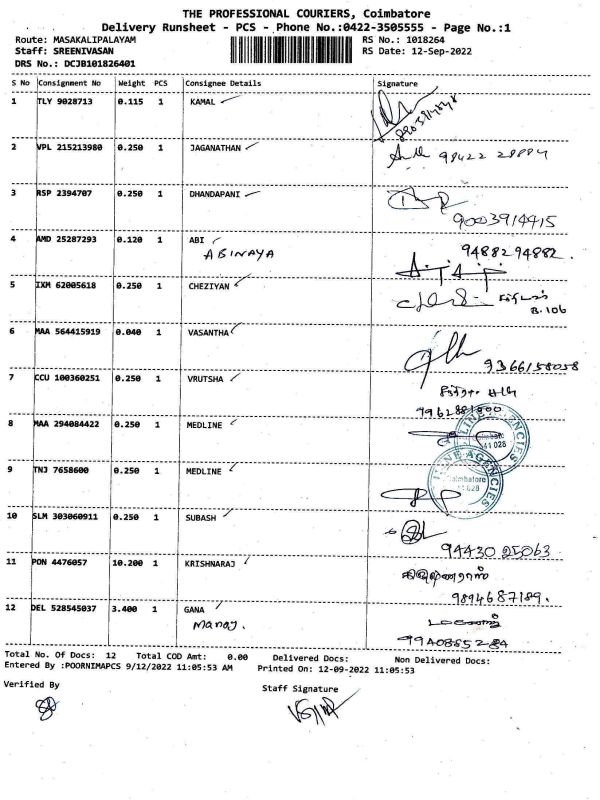 THE PROFESSIONAL COURIERS, Coimbatore
Delivery Runsheet - PCS - Phone No.:0422-3505555 - Page No.:1
Route: MASAKALIPALAYAM RS No.: 1018264
Staff: SREENIVASAN RS Date: 12-Sep-2022
DRS No.: DCJB101826401
S No Consignment No Weight PCS Consignee Details Signature
1 TLY 9028713 0.115 1 KAMAL
2 VPL 215213980 0.250 1 JAGANATHAN
3 RSP 2394707 0.250 1 DHANDAPANI
9003914415
4 AMD 25287293 0.120 1 ABI 9488294882.
ABINAYA
5 IXM 62005618 0.250 1 CHEZIYAN
B.106
6 MAA 564415919 0.040 1 VASANTHA
9366158058
7 CCU 100360251 0.250 1 VRUTSHA
8 MAA 294084422 0.250 1 MEDLINE
9 TNJ 7658600 0.250 1 MEDLINE
LINE AGENCIES
Coimbatore
10 SLM 303060911 0.250 1 SUBASH
11 PON 4476057 10.200 1 KRISHNARAJ
9894687189.
12 DEL 528545037 3.400 1 GANA
Manoj.
Total No. Of Docs: 12 Total COD Amt: 0.00 Delivered Docs: Non Delivered Docs:
Entered By :POORNIMAPCS 9/12/2022 11:05:53 AM Printed On: 12-09-2022 11:05:53
Verified By Staff Signature